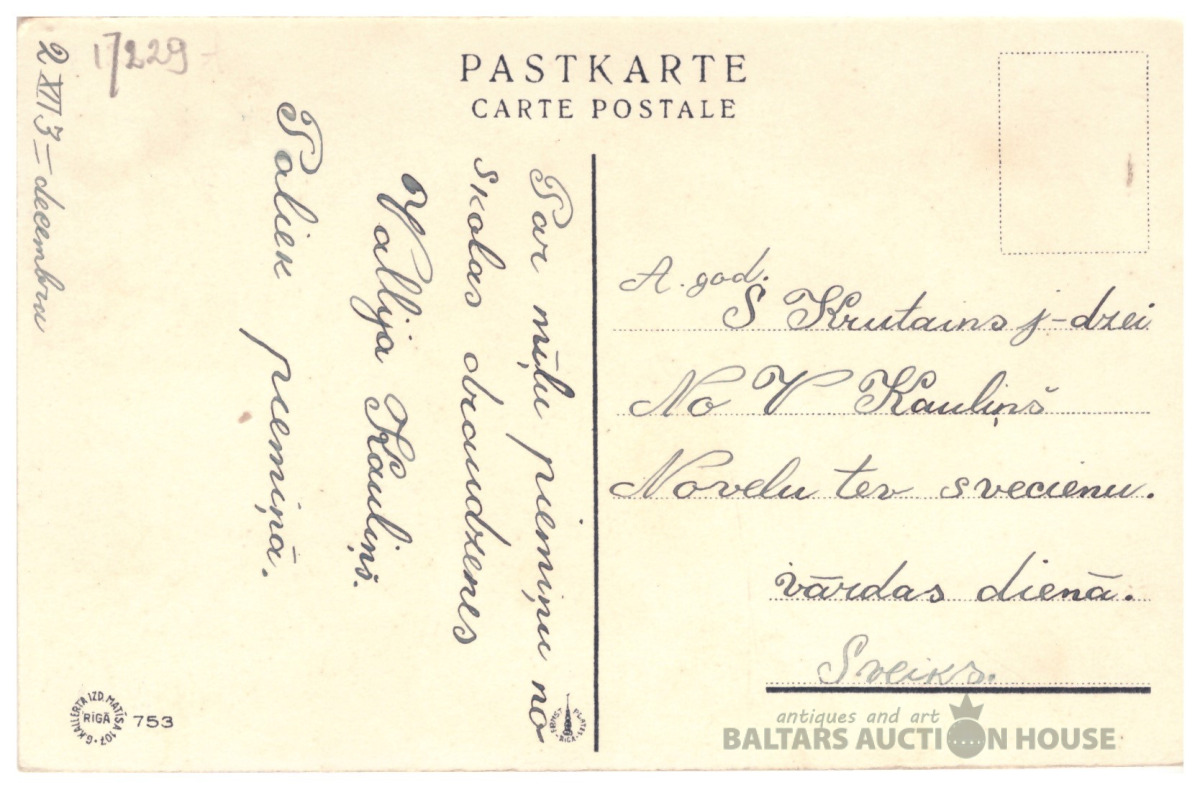 17229
PASTKARTE
CARTE POSTALE
2 XII 3 = decembra
Par mīļu piemiņu no
skolas draudzenes
Vallija Kauliņš.
Paliek piemiņā.
A. god.
S Krutains j-dzei
No V Kauliņš
Novelu tev svecienu.
vārdas dienā.
Sveiks.
G.KALLERTA IZD. MATĪSA 107
RĪGĀ
753
antiques and art
BALTARS AUCTION HOUSE